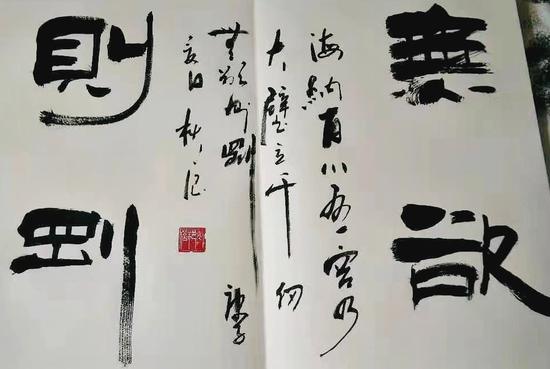 無欲
海納百川有容乃
大壁立千仞
無欲則剛 庚子
夏日
則剛